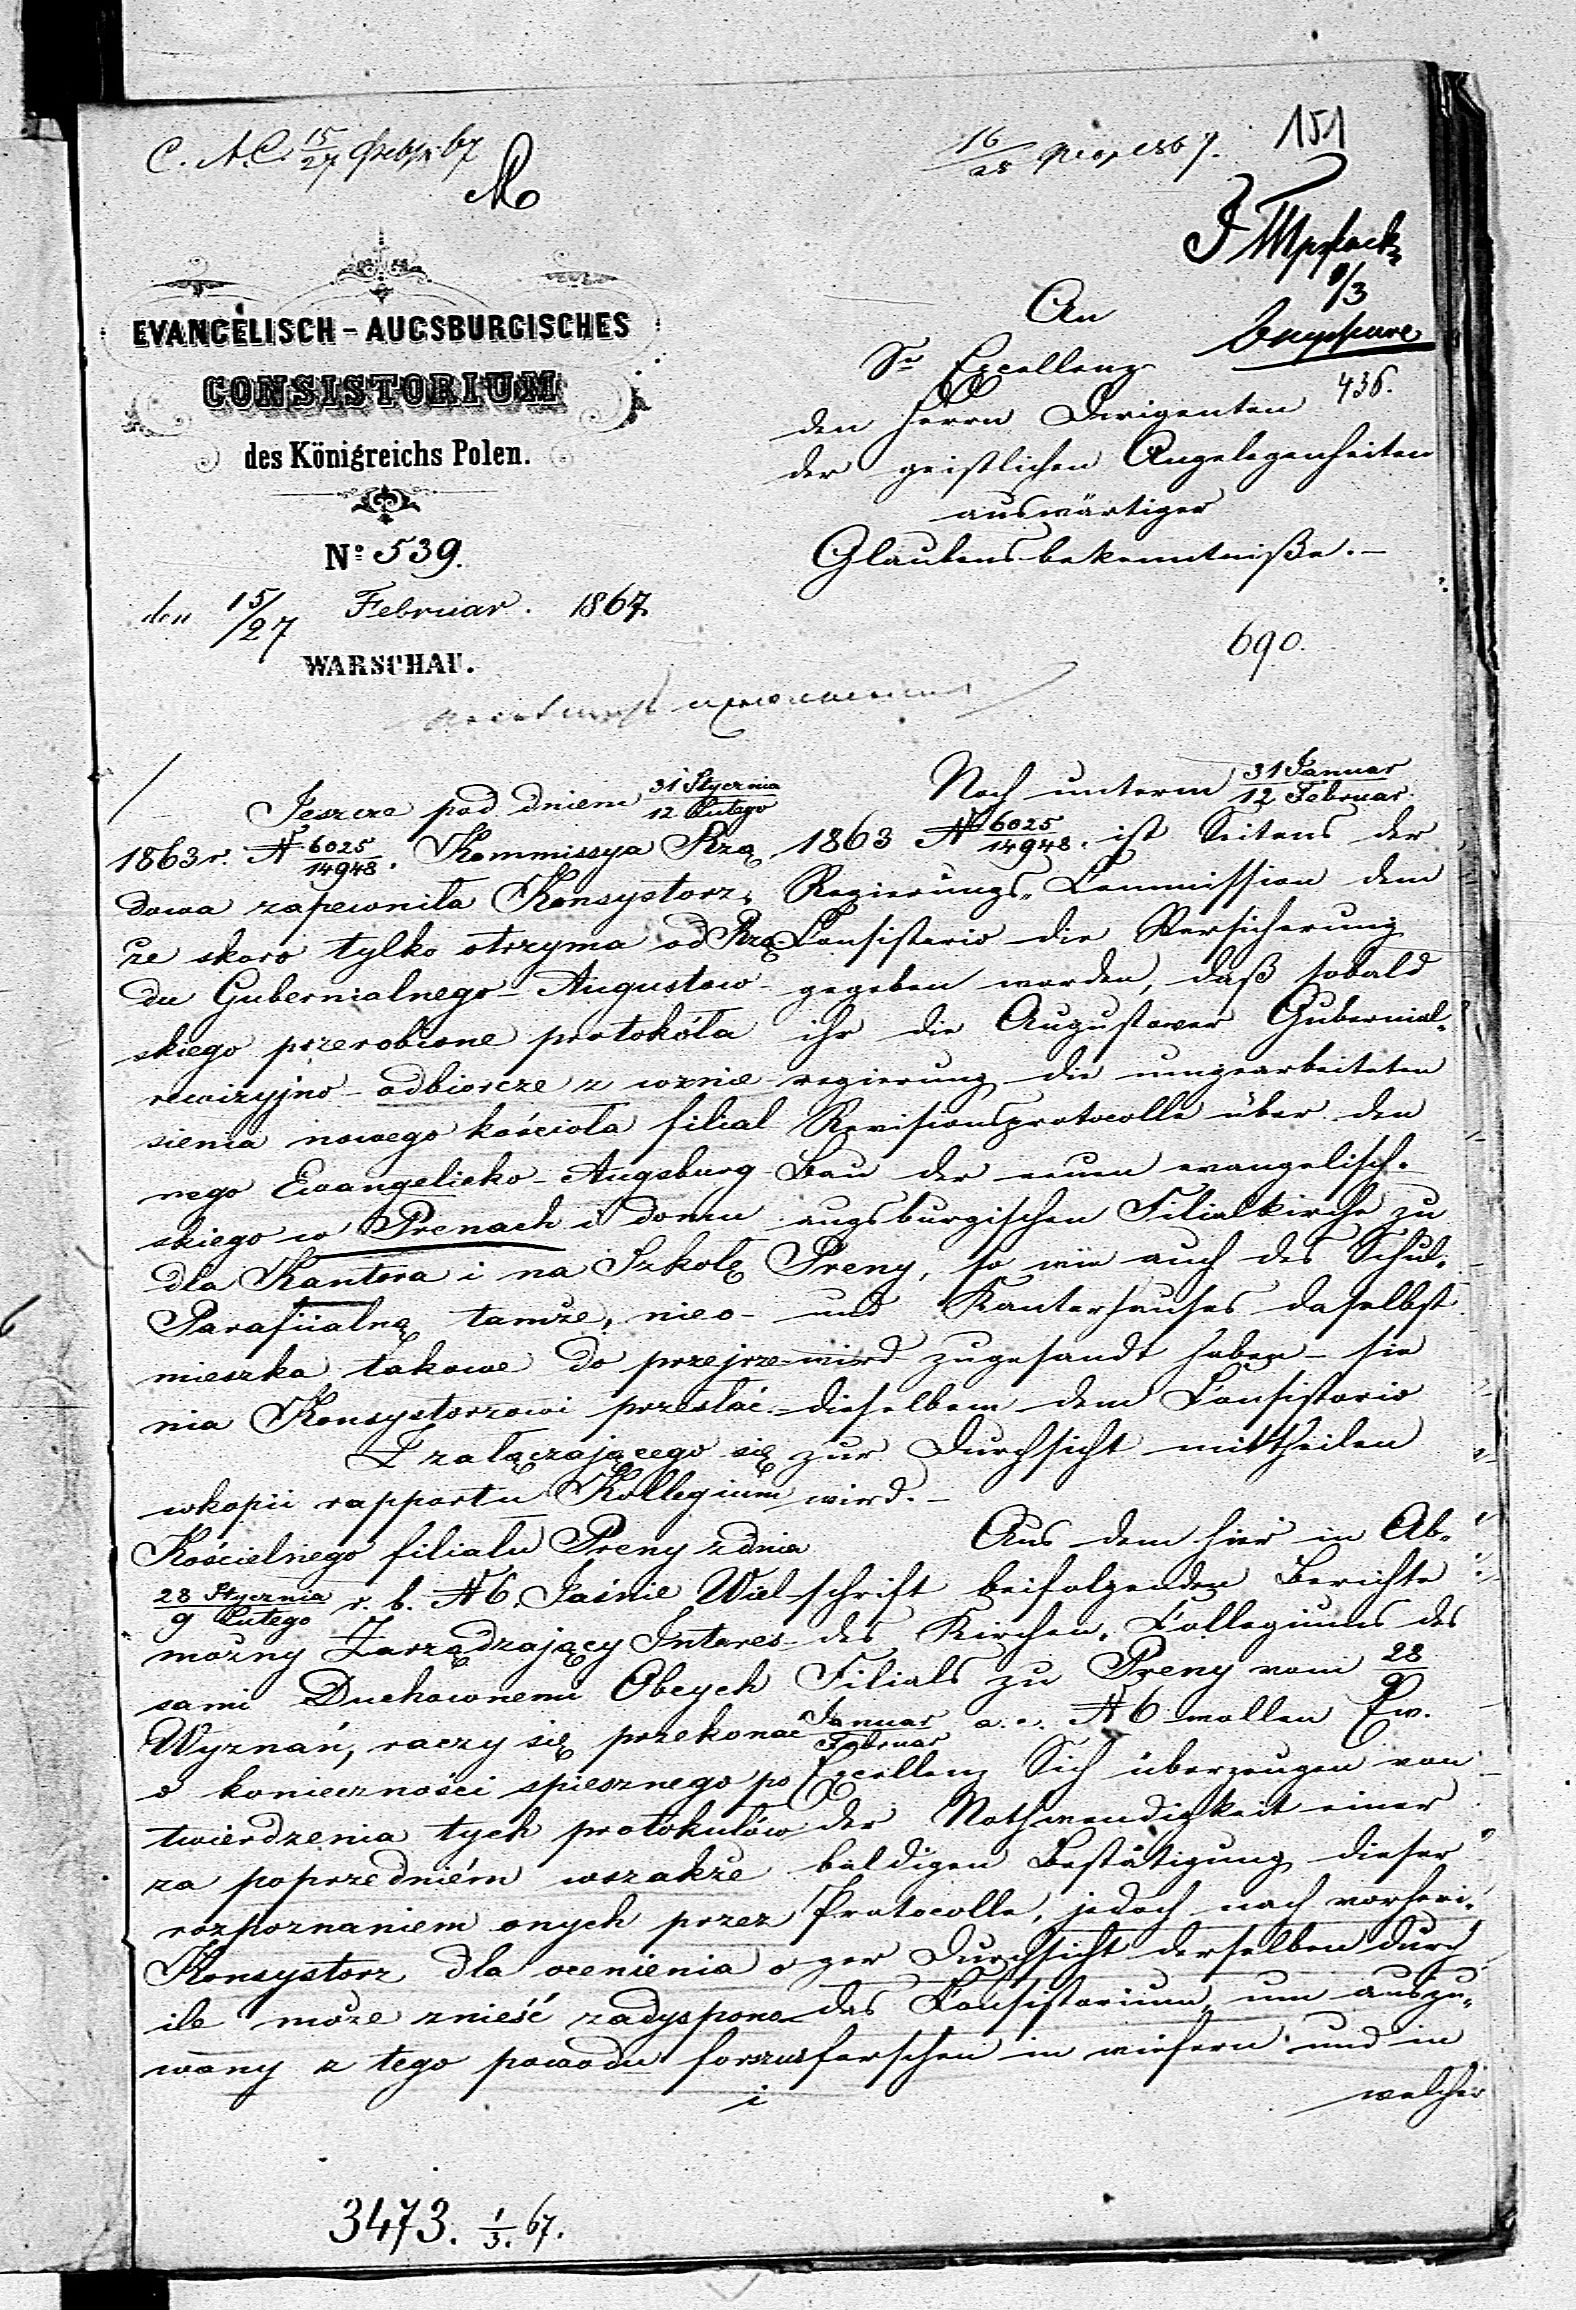 C. A. C. 15/27 февр. 67
16/28 февр. 1867.
151
9/3
436.
EVANGELISCH-AUGSBURGISCHES
CONSISTORIUM
des Königreichs Polen.
№ 539.
den 15/27 Februar. 1867.
WARSCHAU.
An
Sr Excellenz
den Herrn Dirigenten
der geistlichen Angelegenheiten
auswärtiger
Glaubensbekenntniße.—
690.
Jeszcze pod dniem 31 Stycznia/12 Lutego
1863 r. № 6025/14948. Kommissya Rzą
dowa zapewniła Konsystorz,
że skoro tylko otrzyma od Rzą-
du Gubernialnego Augustow-
skiego przerobione protokóła
rewizyjno-odbiorcze z wznie-
sienia nowego kościoła filial-
nego Ewangelicko-Augsburg-
skiego w Prenach i domu
dla Kantora i na Szkołę
Parafiialną tamże, nieo-
mieszka takowe do przejrze-
nia Konsystorzowi przesłać.
Z załączającego się
w kopii rapportu Kollegium
Kościelnego filiału Preny z dnia
28 Stycznia/9 Lutego r. b. № 6. Jaśnie Wiel-
możny Zarządzający Interes-
sami Duchownemi Obcych
Wyznań, raczy się przekonać
o konieczności spiesznego po
twierdzenia tych protokułów
za poprzedniém wszakże
rozpoznaniem onych przez
Konsystorz dla ocenienia o
ile może znieść zadyspono-
wany z tego powodu forszus
i
Noch unterm 31 Januar/12 Februar.
1863 № 6025/14948. ist Seitens der
Regierungs-Commission dem
Consistorio die Versicherung
gegeben worden, daß sobald
ihr die Augustower Gubernial-
regierung die umgearbeiteten
Revisionsprotocolle über den
Bau der neuen evangelisch-
augsburgischen Filialkirche zu
Preny, so wie auch des Schul-
und Kantorhauses daselbst
wird zugesandt haben – sie
dieselben dem Consistorio
zur Durchsicht mittheilen
wird.—
Aus dem hier in Ab-
schrift beifolgenden Berichte
des Kirchen-Collegiums des
Filials zu Preny vom 28/9
Januar/Februar a. c. № 6 wollen Ew.
Excellenz Sich überzeugen von
der Nothwendigkeit einer
baldigen Bestätigung dieser
Protocolle, jedoch nach vorheri-
ger Durchsicht derselben durch
das Consistorium, um auszu-
forschen in wiefern und in
welcher
3473. 1/3. 67.